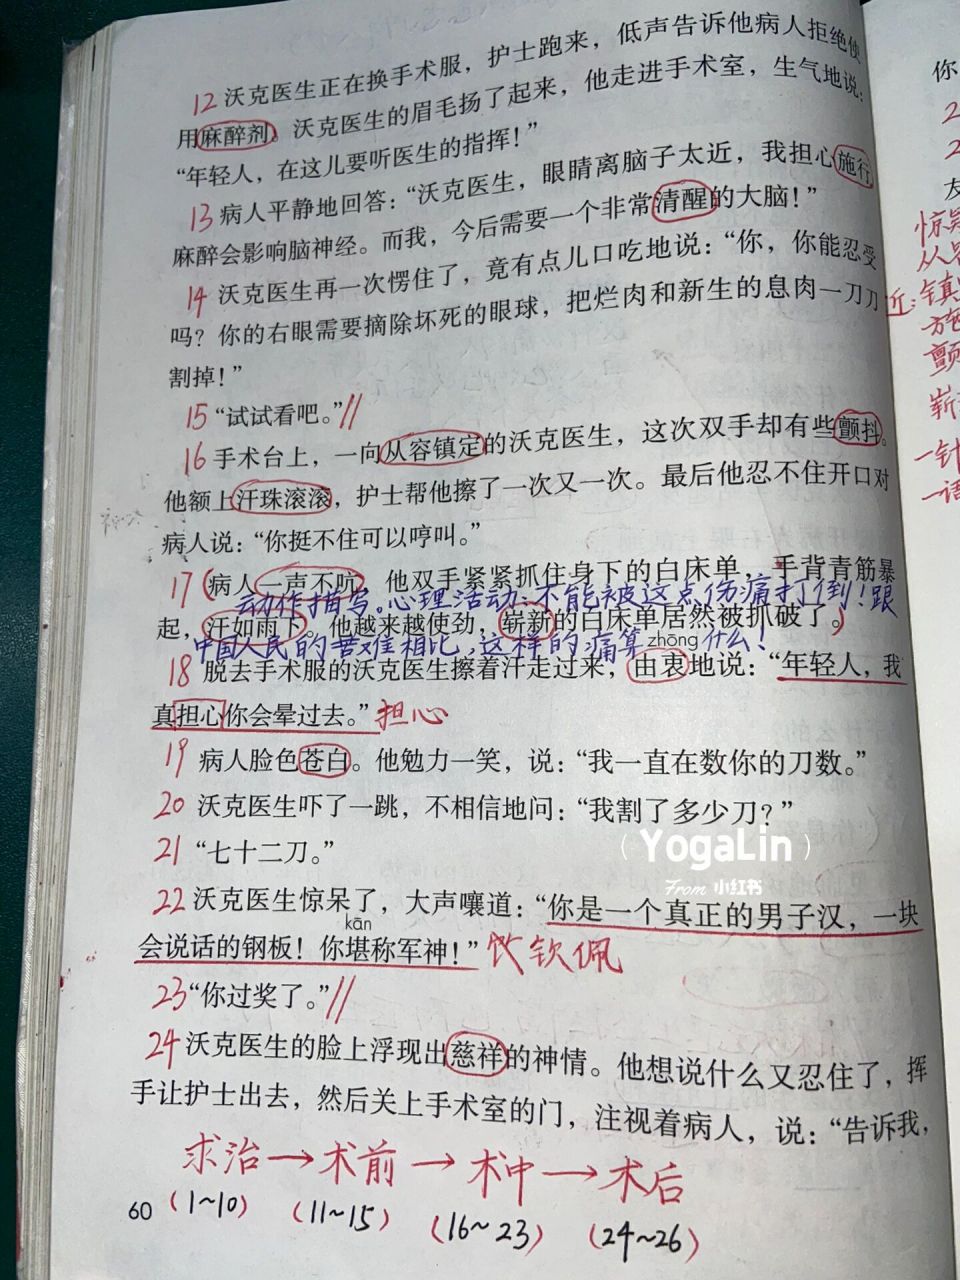 12 沃克医生正在换手术服，护士跑来，低声告诉他病人拒绝使
用麻醉剂。沃克医生的眉毛扬了起来，他走进手术室，生气地说：
“年轻人，在这儿要听医生的指挥！”
13 病人平静地回答：“沃克医生，眼睛离脑子太近，我担心施行
麻醉会影响脑神经。而我，今后需要一个非常清醒的大脑！”
14 沃克医生再一次愣住了，竟有点儿口吃地说：“你，你能忍受
吗？你的右眼需要摘除坏死的眼球，把烂肉和新生的息肉一刀刀
割掉！”
15 “试试看吧。”//
16 手术台上，一向从容镇定的沃克医生，这次双手却有些颤抖。
他额上汗珠滚滚，护士帮他擦了一次又一次。最后他忍不住开口对
病人说：“你挺不住可以哼叫。”
17（病人一声不吭，他双手紧紧抓住身下的白床单，手背青筋暴
动作描写。心理活动：不能被这点伤痛打倒！跟
起，汗如雨下。他越来越使劲，崭新的白床单居然被抓破了。）
中国人民的苦难相比，这样的痛算什么！
zhōng
18 脱去手术服的沃克医生擦着汗走过来，由衷地说：“年轻人，我
真担心你会晕过去。” 担心
19 病人脸色苍白。他勉力一笑，说：“我一直在数你的刀数。”
20 沃克医生吓了一跳，不相信地问：“我割了多少刀？”
21 “七十二刀。”
（YogaLin）
From 小红书
22 沃克医生惊呆了，大声嚷道：“你是一个真正的男子汉，一块
kān
会说话的钢板！你堪称军神！” 钦佩
23 “你过奖了。”//
24 沃克医生的脸上浮现出慈祥的神情。他想说什么又忍住了，挥
手让护士出去，然后关上手术室的门，注视着病人，说：“告诉我，
求治→术前→术中→术后
60 (1~10) (11~15) (16~23) (24~26)
你
2
2
友
从容
近：镇
施
颤
崭
一针
一语